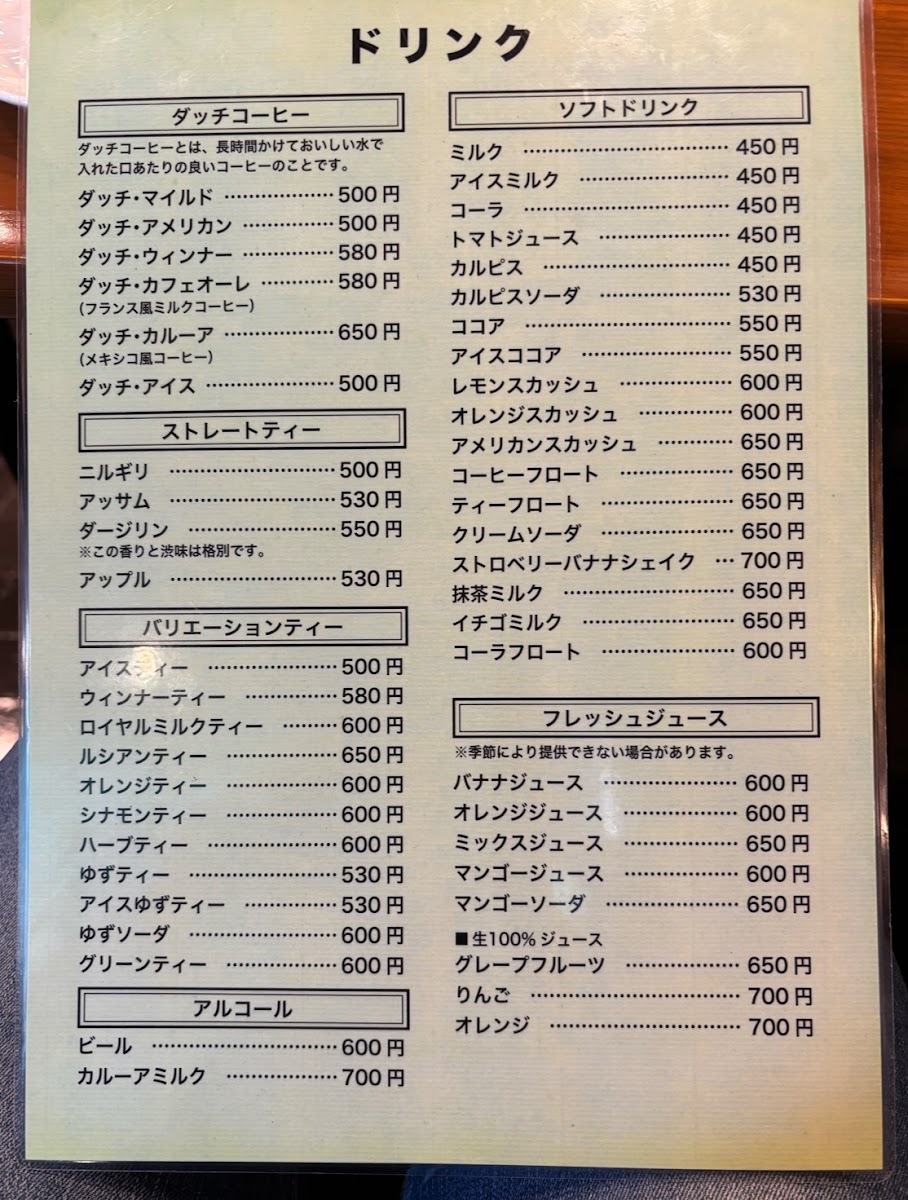 ドリンク
ダッチコーヒー
ダッチコーヒーとは、長時間かけておいしい水で
入れた口あたりの良いコーヒーのことです。
ダッチ・マイルド ・・・・・・・・・・・・・・・・・・ 500 円
ダッチ・アメリカン ・・・・・・・・・・・・・・・ 500 円
ダッチ・ウィンナー ・・・・・・・・・・・・・・・ 580 円
ダッチ・カフェオーレ ・・・・・・・・・・・・ 580 円
(フランス風ミルクコーヒー)
ダッチ・カルーア ・・・・・・・・・・・・・・・・・・ 650 円
(メキシコ風コーヒー)
ダッチ・アイス ・・・・・・・・・・・・・・・・・・・・・ 500 円
ストレートティー
ニルギリ ・・・・・・・・・・・・・・・・・・・・・・・・・・・ 500 円
アッサム ・・・・・・・・・・・・・・・・・・・・・・・・・・・ 530 円
ダージリン ・・・・・・・・・・・・・・・・・・・・・・・・ 550 円
※この香りと渋味は格別です。
アップル ・・・・・・・・・・・・・・・・・・・・・・・・・・・ 530 円
バリエーションティー
アイスティー ・・・・・・・・・・・・・・・・・・・・・ 500 円
ウィンナーティー ・・・・・・・・・・・・・・・ 580 円
ロイヤルミルクティー ・・・・・・・・・ 600 円
ルシアンティー ・・・・・・・・・・・・・・・・・・ 650 円
オレンジティー ・・・・・・・・・・・・・・・・・・ 600 円
シナモンティー ・・・・・・・・・・・・・・・・・・ 600 円
ハーブティー ・・・・・・・・・・・・・・・・・・・・・ 600 円
ゆずティー ・・・・・・・・・・・・・・・・・・・・・・・・ 530 円
アイスゆずティー ・・・・・・・・・・・・・・・ 530 円
ゆずソーダ ・・・・・・・・・・・・・・・・・・・・・・・・ 600 円
グリーンティー ・・・・・・・・・・・・・・・・・・ 600 円
アルコール
ビール ・・・・・・・・・・・・・・・・・・・・・・・・・・・・・・ 600 円
カルーアミルク ・・・・・・・・・・・・・・・・・・ 700 円
ソフトドリンク
ミルク ・・・・・・・・・・・・・・・・・・・・・・・・・・・・・・・・・ 450 円
アイスミルク ・・・・・・・・・・・・・・・・・・・・・・・・ 450 円
コーラ ・・・・・・・・・・・・・・・・・・・・・・・・・・・・・・・・・ 450 円
トマトジュース ・・・・・・・・・・・・・・・・・・・・・ 450 円
カルピス ・・・・・・・・・・・・・・・・・・・・・・・・・・・・・・ 450 円
カルピスソーダ ・・・・・・・・・・・・・・・・・・・・・ 530 円
ココア ・・・・・・・・・・・・・・・・・・・・・・・・・・・・・・・・・ 550 円
アイスココア ・・・・・・・・・・・・・・・・・・・・・・・・ 550 円
レモンスカッシュ ・・・・・・・・・・・・・・・・・・ 600 円
オレンジスカッシュ ・・・・・・・・・・・・・・・ 600 円
アメリカンスカッシュ ・・・・・・・・・・・・ 650 円
コーヒーフロート ・・・・・・・・・・・・・・・・・・ 650 円
ティーフロート ・・・・・・・・・・・・・・・・・・・・・ 650 円
クリームソーダ ・・・・・・・・・・・・・・・・・・・・・ 650 円
ストロベリーバナナシェイク ・・・ 700 円
抹茶ミルク ・・・・・・・・・・・・・・・・・・・・・・・・・・・ 650 円
イチゴミルク ・・・・・・・・・・・・・・・・・・・・・・・・ 650 円
コーラフロート ・・・・・・・・・・・・・・・・・・・・・ 600 円
フレッシュジュース
※季節により提供できない場合があります。
バナナジュース ・・・・・・・・・・・・・・・・・・・・・ 600 円
オレンジジュース ・・・・・・・・・・・・・・・・・・ 600 円
ミックスジュース ・・・・・・・・・・・・・・・・・・ 650 円
マンゴージュース ・・・・・・・・・・・・・・・・・・ 600 円
マンゴーソーダ ・・・・・・・・・・・・・・・・・・・・・ 650 円
■ 生100% ジュース
グレープフルーツ ・・・・・・・・・・・・・・・・・・ 650 円
りんご ・・・・・・・・・・・・・・・・・・・・・・・・・・・・・・・・・ 700 円
オレンジ ・・・・・・・・・・・・・・・・・・・・・・・・・・・・・・ 700 円